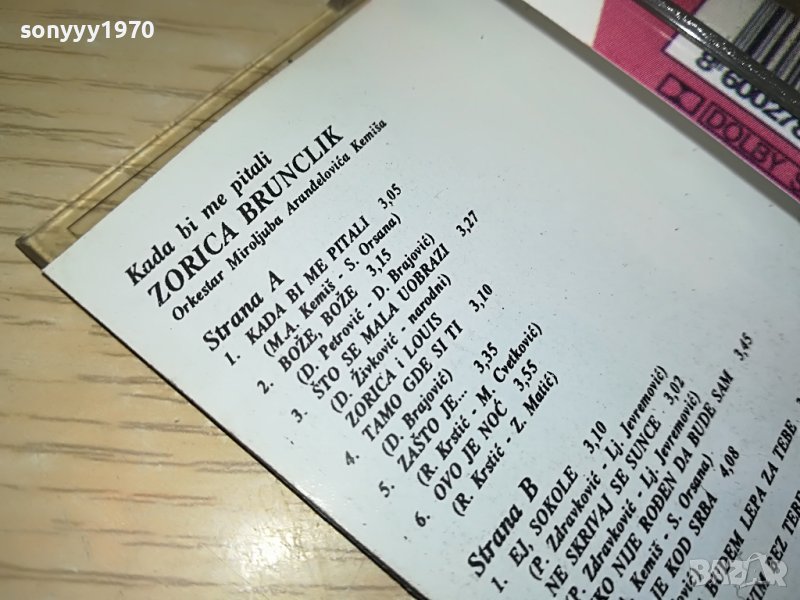 sonyyy1970
Kada bi me pitali
ZORICA BRUNCLIK
Orkestar Miroljuba Aranđelovića Kemiša
Strana A
1. KADA BI ME PITALI 3,05
(M.A. Kemiš - S. Orsana)
2. BOŽE, BOŽE 3,15
(D. Petrović - D. Brajović)
3. ŠTO SE MALA UOBRAZI 3,27
(D. Živković - narodni)
ZORICA i LOUIS
4. TAMO GDE SI TI 3,10
(D. Brajović)
5. ZAŠTO JE... 3,35
(R. Krstić - M. Cvetković)
6. OVO JE NOĆ 3,55
(R. Krstić - Z. Matić)
Strana B
1. EJ, SOKOLE 3,10
(P. Zdravković - Lj. Jevremović)
NE SKRIVAJ SE SUNCE 3,02
P. Zdravković - Lj. Jevremović)
KO NIJE ROĐEN DA BUDE SAM 3,45
Kemiš - S. Orsana)
JE KOD SRBA 4,08
BUDEM LEPA ZA TEBE
BEZ TEBE
DOLBY
Bazar